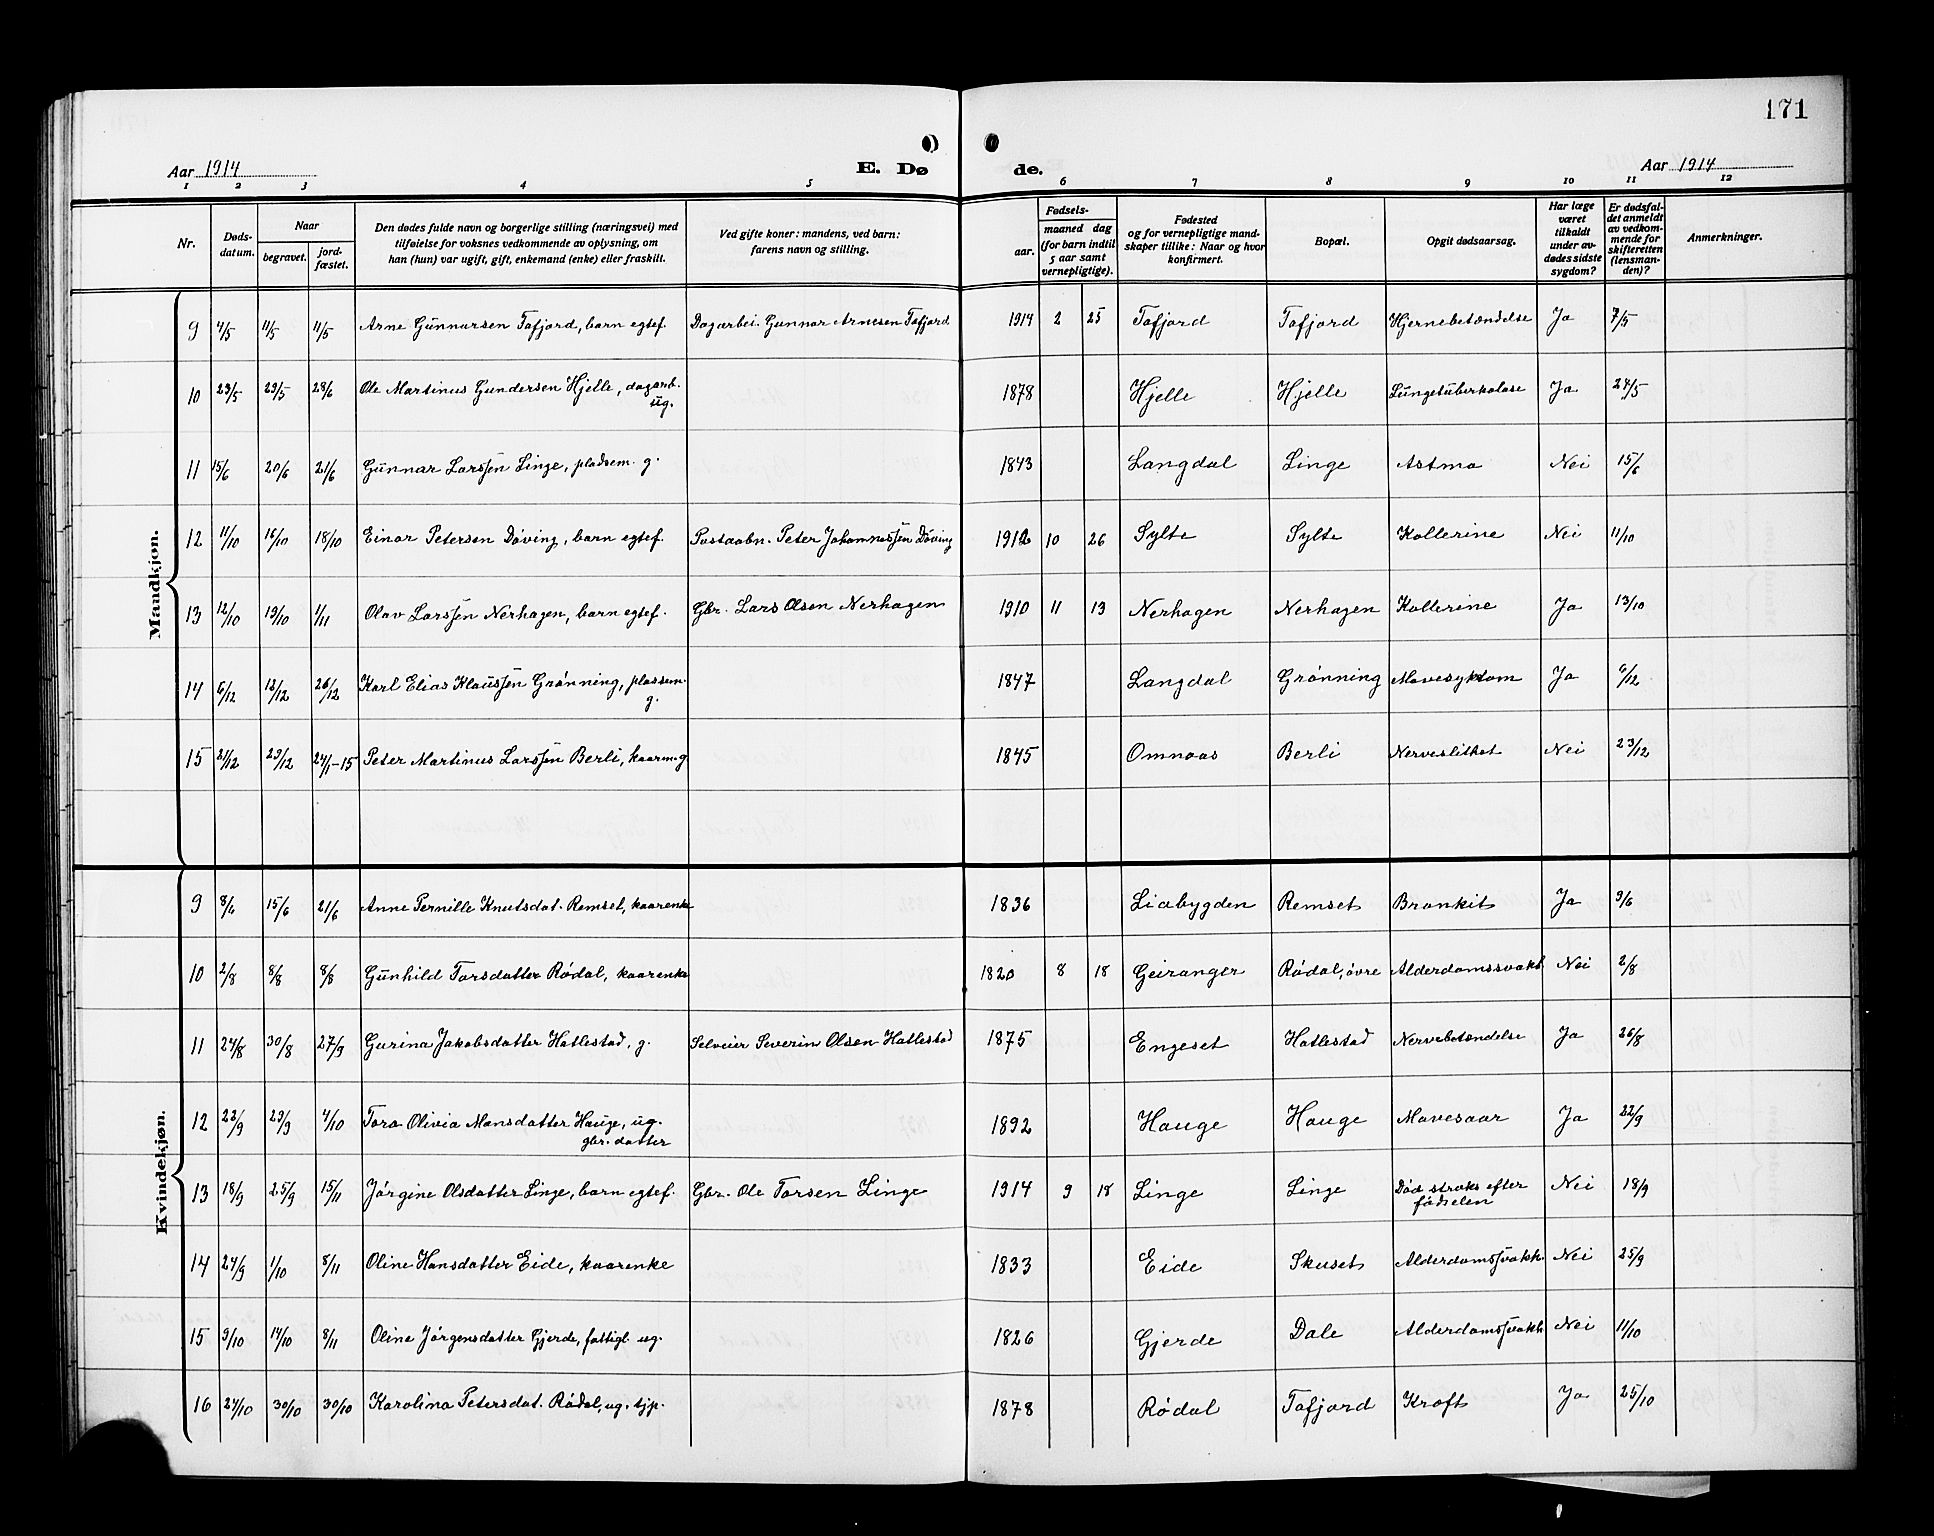 171
Aar 1914
E. Døde.
Aar 1914
1 2 3 4 5 6 7 8 9 10 11 12
Nr.
Dødsdatum.
Naar
begravet.
jordfæstet.
Den dødes fulde navn og borgerlige stilling (næringsvei) med
tilføielse for voksnes vedkommende av oplysning, om
han (hun) var ugift, gift, enkemand (enke) eller fraskilt.
Ved gifte koner: mandens, ved barn:
farens navn og stilling.
Fødsels-
aar.
maaned dag
(for barn indtil
5 aar samt
vernepligtige).
Fødested
og for vernepligtige mand-
skaper tillike: Naar og hvor
konfirmert.
Bopæl.
Opgit dødsaarsag.
Har læge
været
tilkaldt
under av-
dødes sidste
sygdom?
Er dødsfal-
det anmeldt
av vedkom-
mende for
skifteretten
(lensman-
den)?
Anmerkninger.
Mandkjøn.
9 4/5 11/5 11/5 Arne Gunnarsen Tafjord, barn egtef. Dagarbei. Gunnar Arnesen Tafjord 1914 2 25 Tafjord Tafjord Hjernebetændelse Ja 7/5
10 23/5 29/5 28/6 Ole Martinus Gundersen Hjelle, dagarb. ug. 1878 Hjelle Hjelle Lungetuberkolose Ja 24/5
11 15/6 20/6 21/6 Gunnar Larssen Linge, pladsem. g. 1843 Langdal Linge Astma Nei 15/6
12 11/10 16/10 18/10 Einar Petersen Døving, barn egtef. Postaabn. Peter Johannessen Døving 1912 10 26 Sylte Sylte Kollerine Nei 11/10
13 12/10 19/10 1/11 Olav Larssen Nerhagen, barn egtef. Gbr. Lars Olsen Nerhagen 1910 11 13 Nerhagen Nerhagen Kollerine Ja 13/10
14 6/12 12/12 26/12 Karl Elias Klaussen Grønning, plassem. g. 1847 Langdal Grønning Mavesykdom Ja 9/12
15 21/12 29/12 24/1-15 Peter Martinus Larssen Berli, kaarm. g 1845 Omnaas Berli Nerveslithet Nei 23/12
Kvindekjøn.
9 8/6 15/6 21/6 Anne Pernille Knutsdat. Remset, kaarenke 1836 Liabygden Remset Bronkit Ja 9/6
10 2/8 8/8 8/8 Gunhild Torsdatter Rødal, kaarenke 1820 8 18 Geiranger Rødal, øvre Alderdomssvakh Nei 2/8
11 24/8 30/8 27/9 Gurina Jakobsdatter Hatlestad, g. Selveier Severin Olsen Hatlestad 1875 Engeset Hatlestad Nervebetændelse Ja 26/8
12 22/9 29/9 4/10 Tora Olivia Monsdatter Hauge, ug. gbr. datter 1892 Hauge Hauge Mavesaar Ja 22/9
13 18/9 25/9 15/11 Jørgine Olsdatter Linge, barn egtef. Gbr. Ole Torsen Linge 1914 9 18 Linge Linge Død straks efter fødselen Nei 18/9
14 24/9 1/10 8/11 Oline Hansdatter Eide, kaarenke 1833 Eide Skuset Alderdomssvakh. Nei 25/9
15 9/10 14/10 8/11 Oline Jørgensdatter Gjerde, fattigl. ug. 1826 Gjerde Dale Alderdomssvakh Nei 11/10
16 24/10 30/10 30/10 Karolina Petersdat. Rødal, ug. tjp. 1878 Rødal Tafjord Kræft Ja 25/10